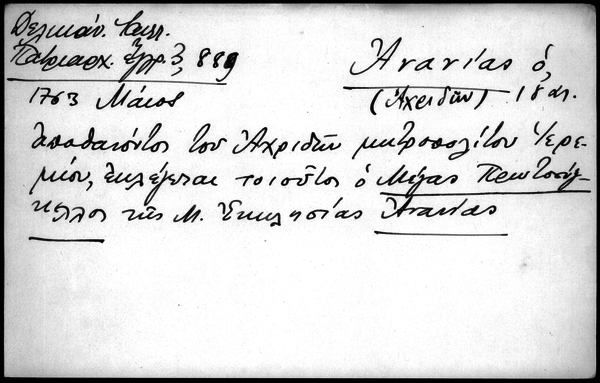 Δελικάν. Καλλ.
Πατριαρχ. Ἔγγρ. 3, 889
Ἀνανίας ὁ,
(Ἀχριδῶν) 18 αι.
1763 Μάιος
ἀποθανόντος τοῦ Ἀχριδῶν μητροπολίτου Ἱερε-
μίου, ἐκλέγεται τοιοῦτος ὁ Μέγας Πρωτοσύγ-
κελλος τῆς Μ. Ἐκκλησίας Ἀνανίας